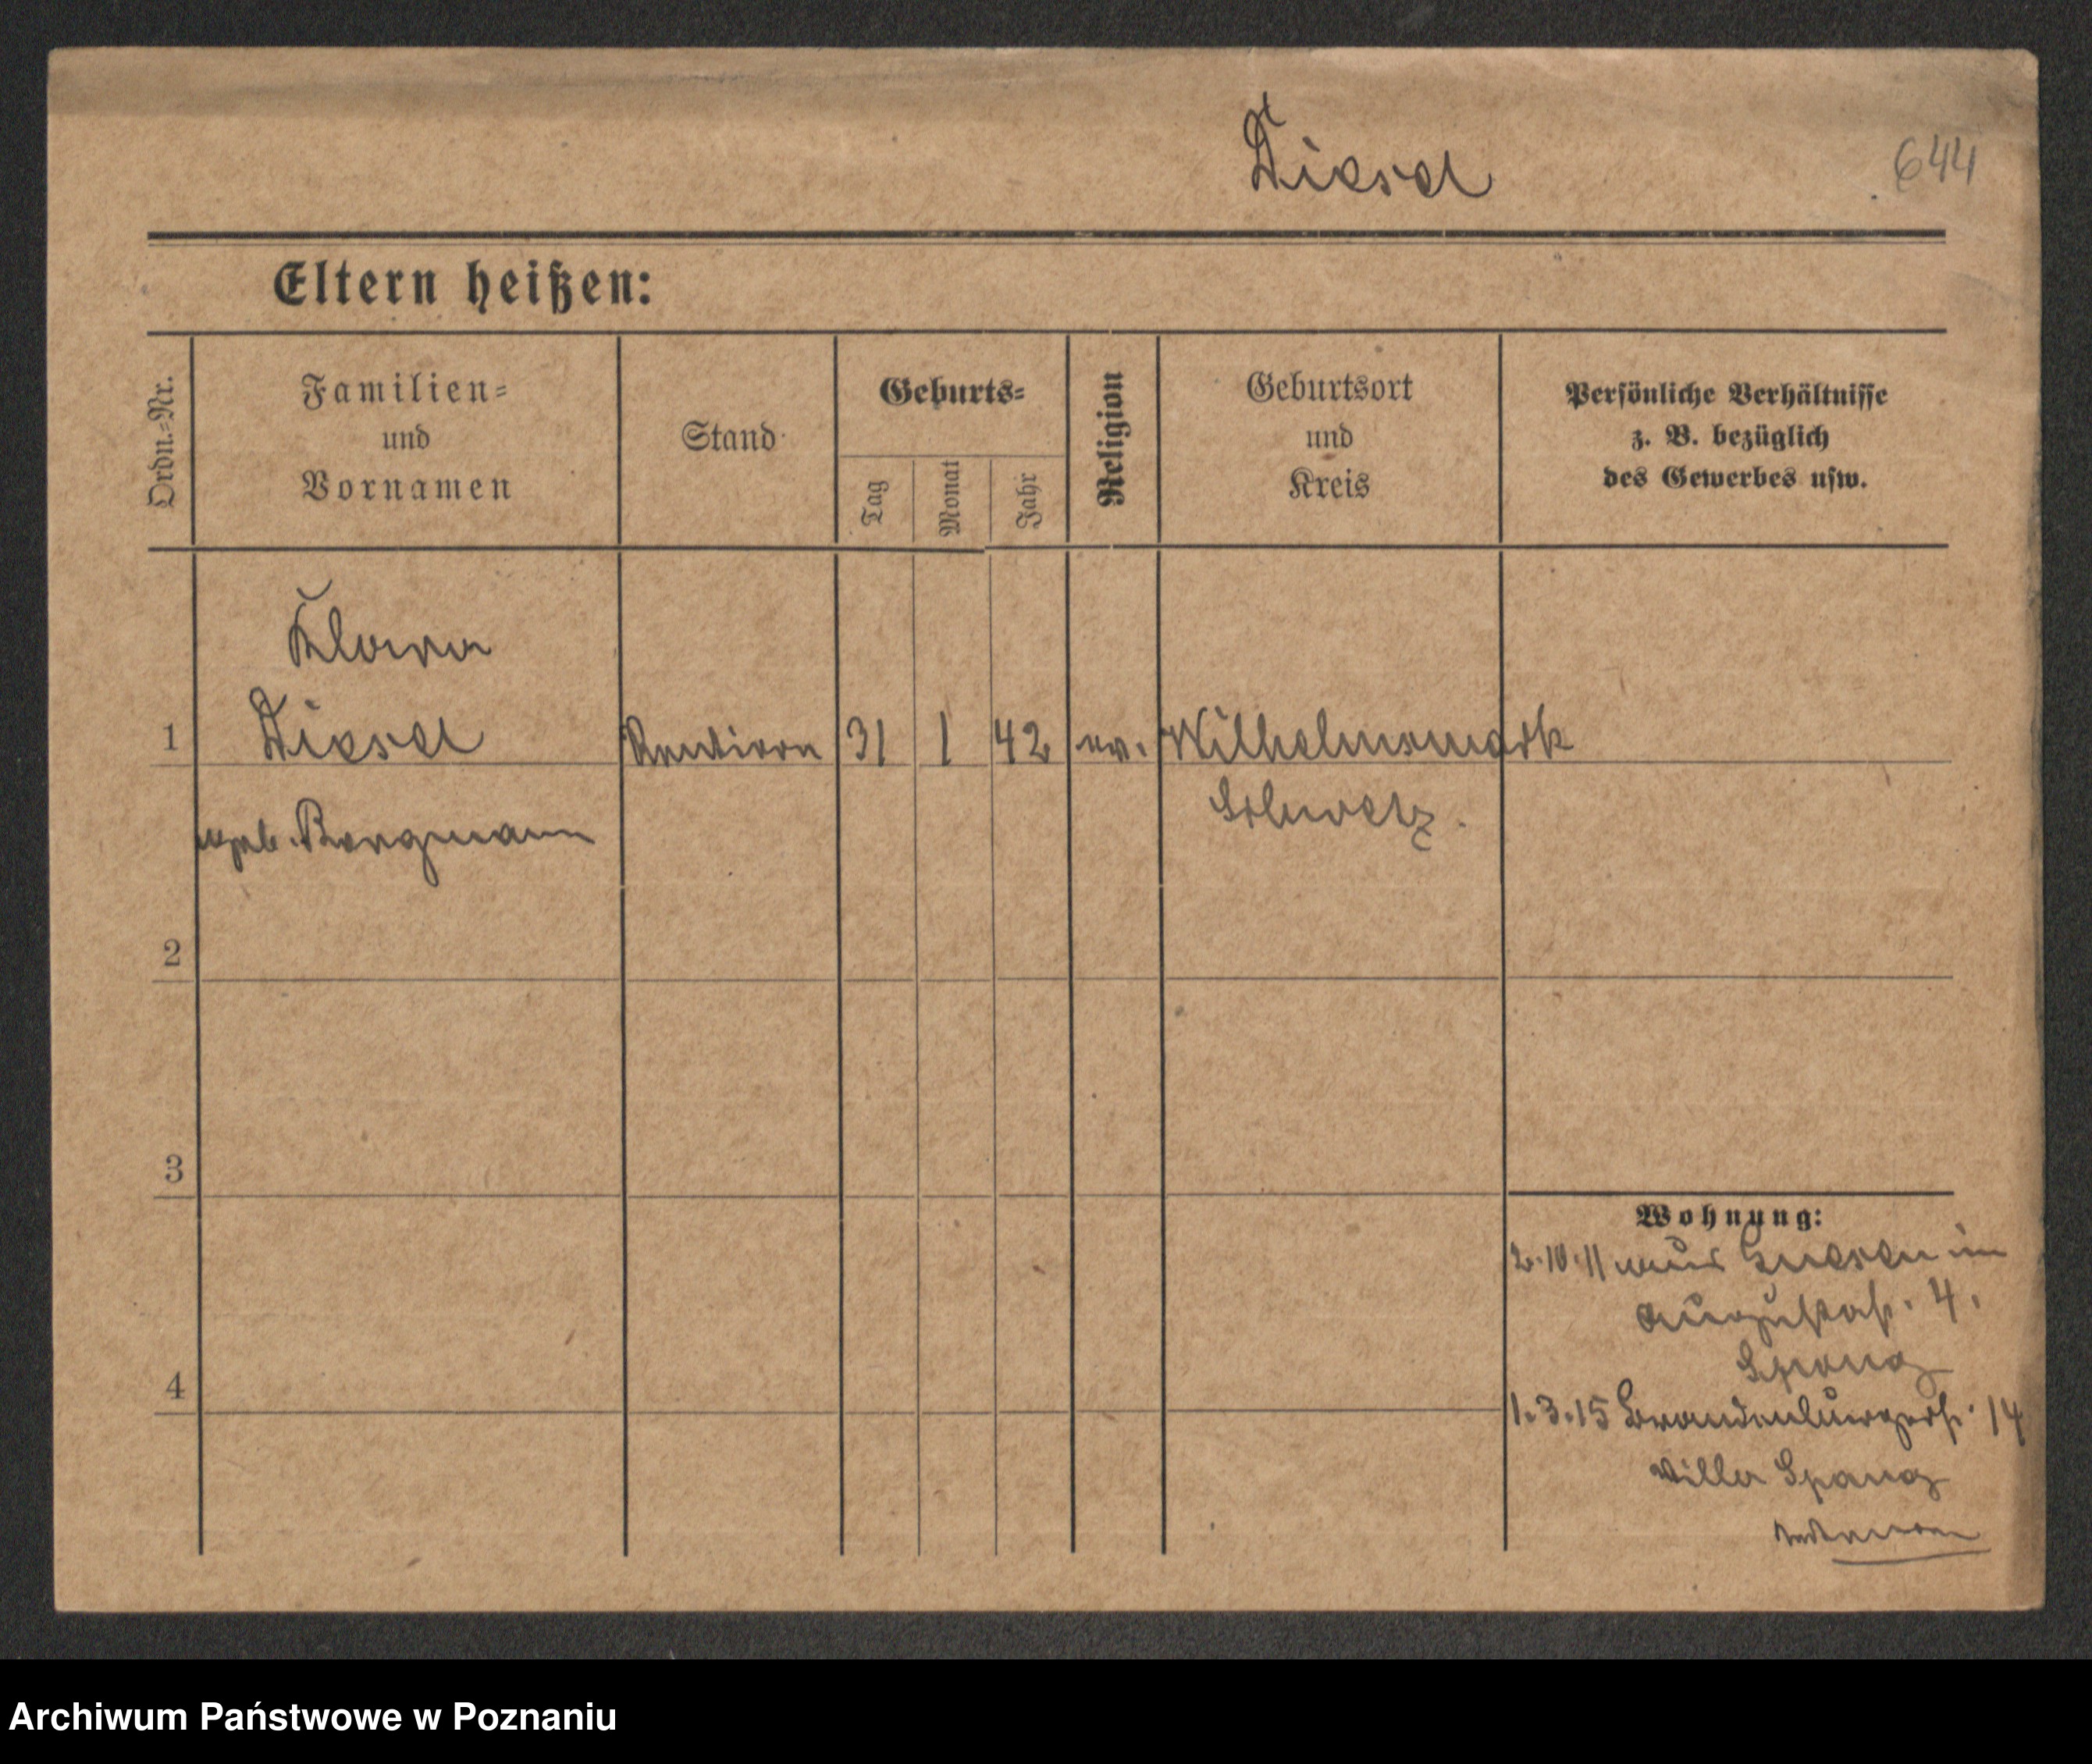 Diesel
644
Eltern heißen:
Ordn.-Nr.
Familien-
und
Vornamen
Stand
Geburts-
Tag
Monat
Jahr
Religion
Geburtsort
und
Kreis
Persönliche Verhältnisse
z. B. bezüglich
des Gewerbes usw.
Klara
1 Diesel Rentiere 31 1 42 ev. Wilhelmsmark
geb. Bergmann Schwetz.
2
3
4
Wohnung:
2.10.11 aus Gnesen in
Augustastr. 4.
Spang
1.3.15 Brandenburgerstr. 14
Villa Spang
Archiwum Państwowe w Poznaniu